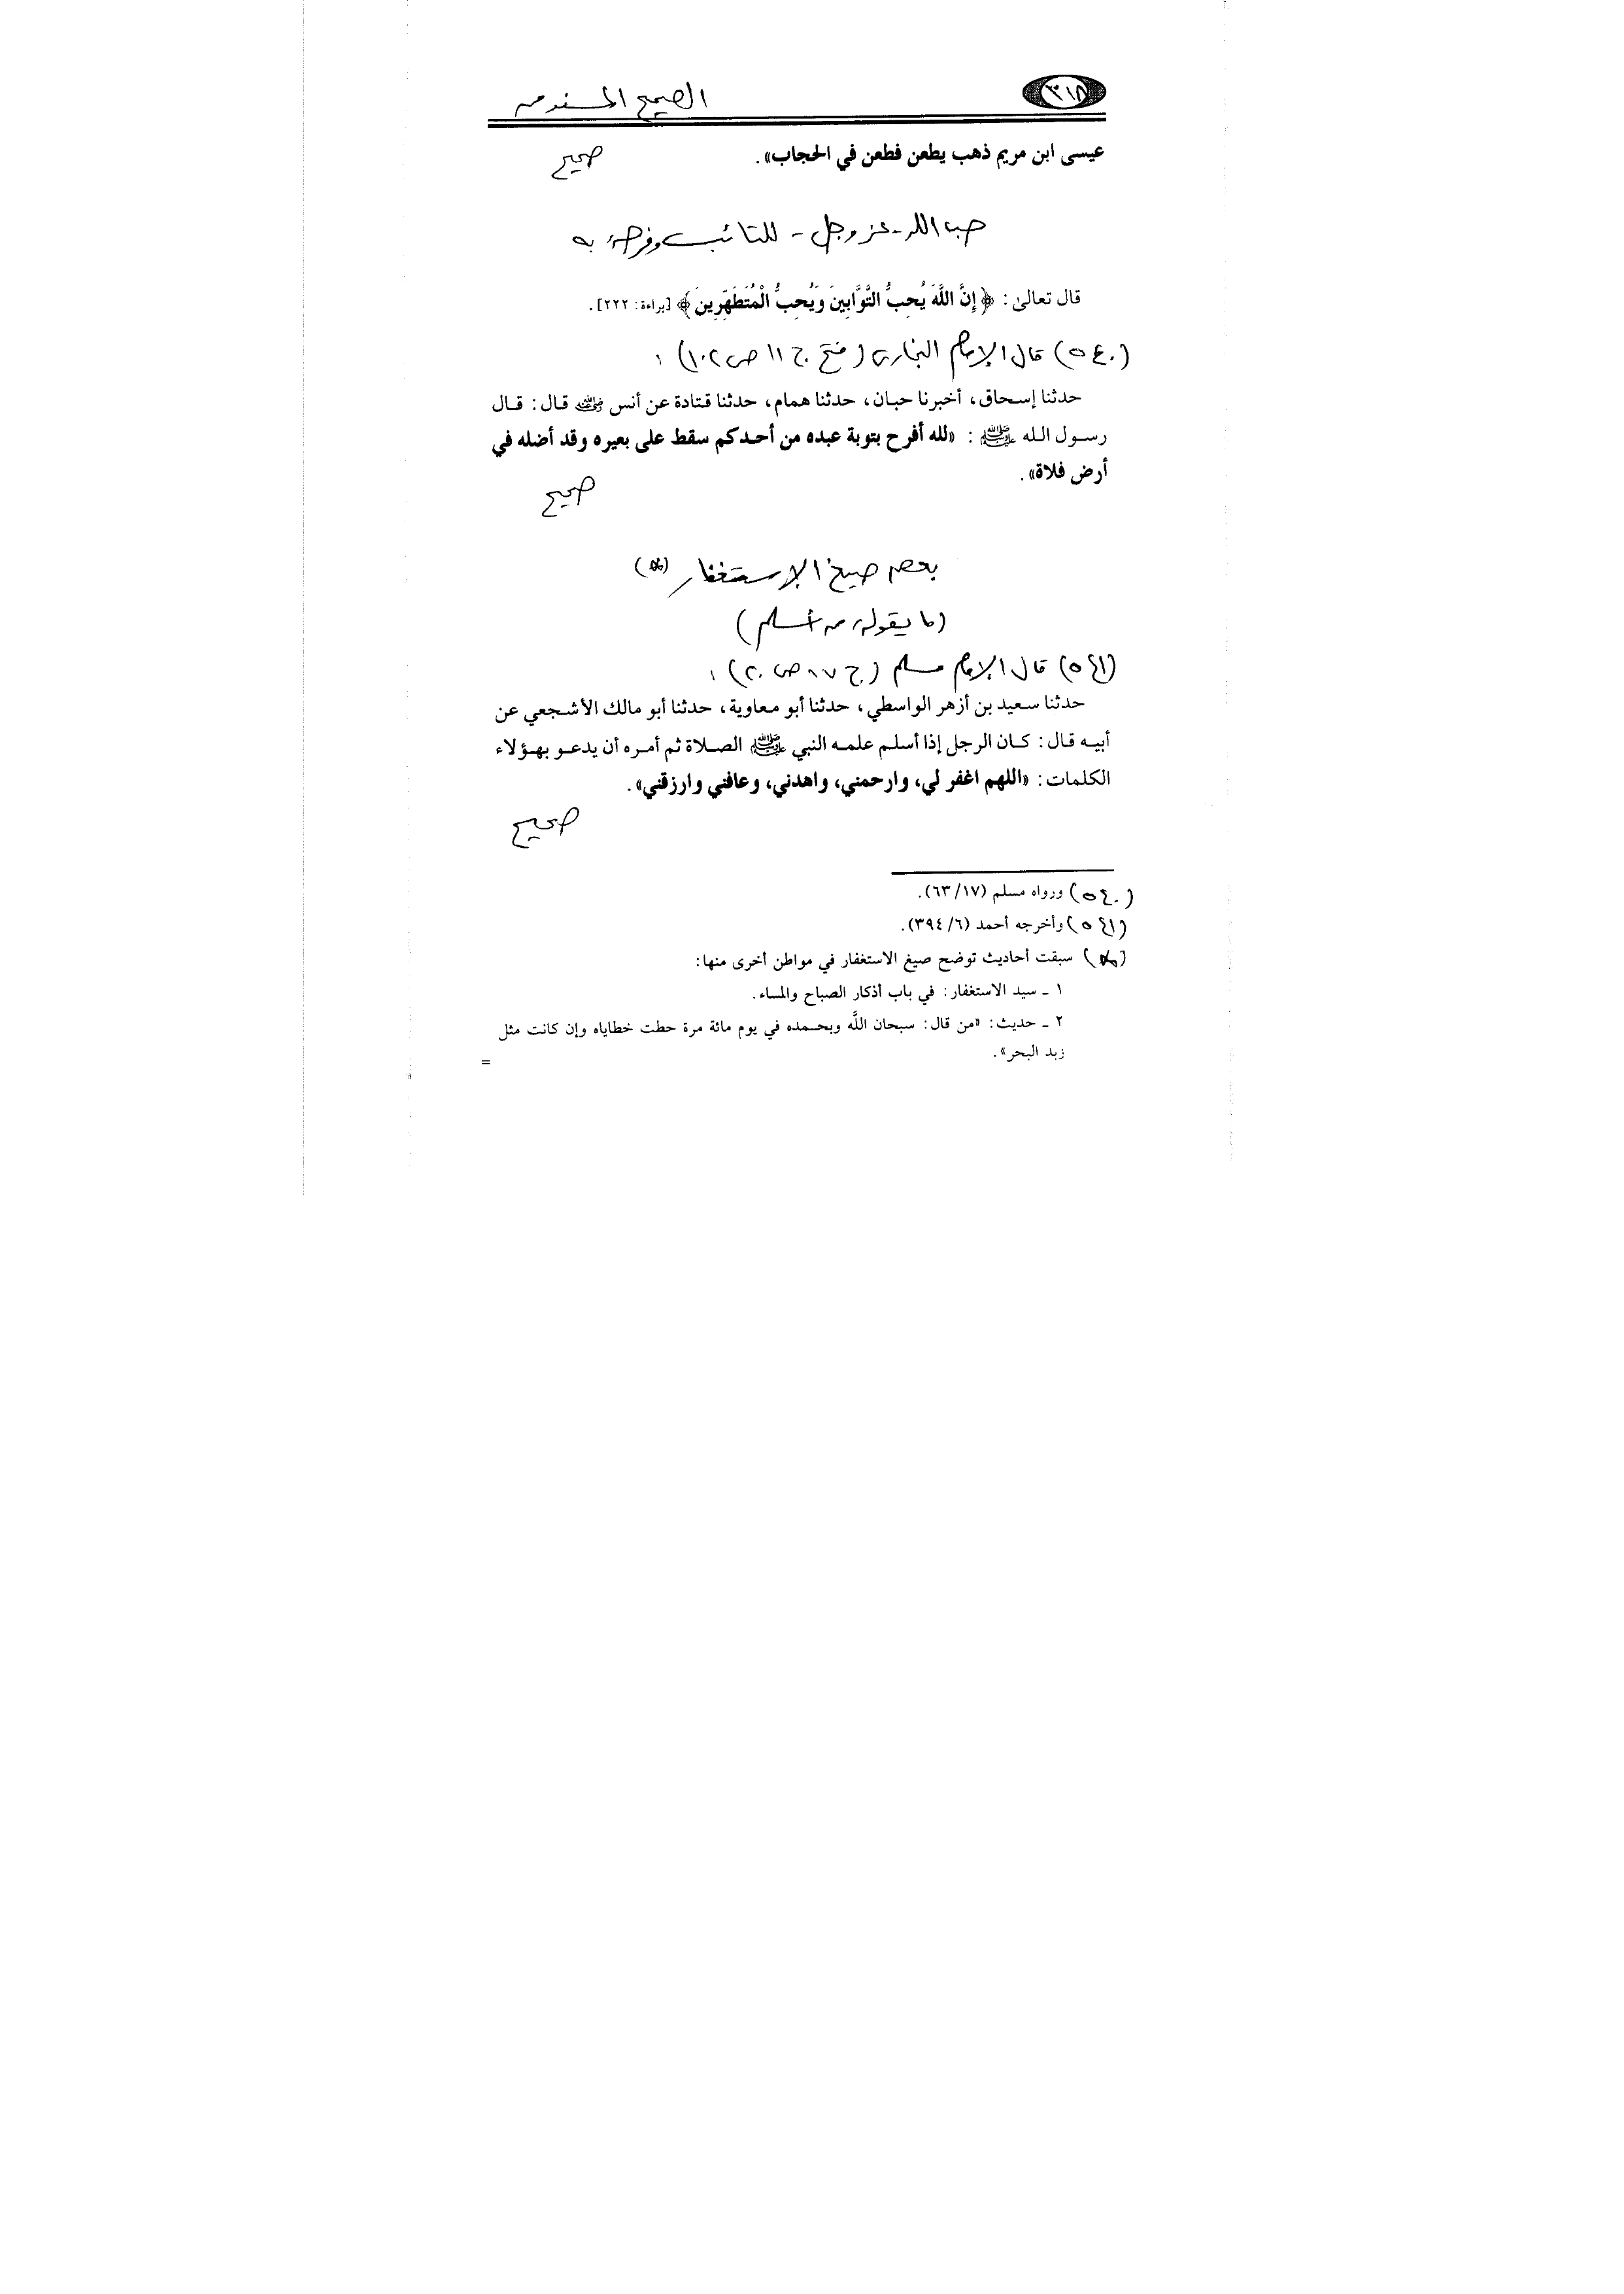 ٣١٨
الصحيح المسند من
عيسى ابن مريم ذهب يطعن فطعن في الحجاب».
صحيح
حب الله - عز وجل - للتائب وفرحه به
قال تعالىٰ: ﴿إِنَّ اللَّهَ يُحِبُّ التَّوَّابِينَ وَيُحِبُّ الْمُتَطَهِّرِينَ﴾ [براءة: ٢٢٢].
(٥٤٠) قال الإمام البخارى (فتح ج ١١ ص ١٠٢):
حدثنا إسحاق، أخبرنا حبان، حدثنا همام، حدثنا قتادة عن أنس رضي الله عنه قال: قال
رسول الله ﷺ: «لله أفرح بتوبة عبده من أحدكم سقط على بعيره وقد أضله في
أرض فلاة».
صحيح
بعض صيغ الإستغفار (*)
(ما يقوله من أسلم)
(٥٤١) قال الإمام مسلم (ج ١٧ ص ٢٠):
حدثنا سعيد بن أزهر الواسطي، حدثنا أبو معاوية، حدثنا أبو مالك الأشجعي عن
أبيه قال: كان الرجل إذا أسلم علمه النبي ﷺ الصلاة ثم أمره أن يدعو بهؤلاء
الكلمات: «اللهم اغفر لي، وارحمني، واهدني، وعافني وارزقني».
صحيح
(٥٤٠) ورواه مسلم (٦٣/١٧).
(٥٤١) وأخرجه أحمد (٣٩٤/٦).
(*) سبقت أحاديث توضح صيغ الاستغفار في مواطن أخرى منها:
١ ـ سيد الاستغفار: في باب أذكار الصباح والمساء.
٢ ـ حديث: «من قال: سبحان اللَّه وبحمده في يوم مائة مرة حطت خطاياه وإن كانت مثل
زبد البحر».
=